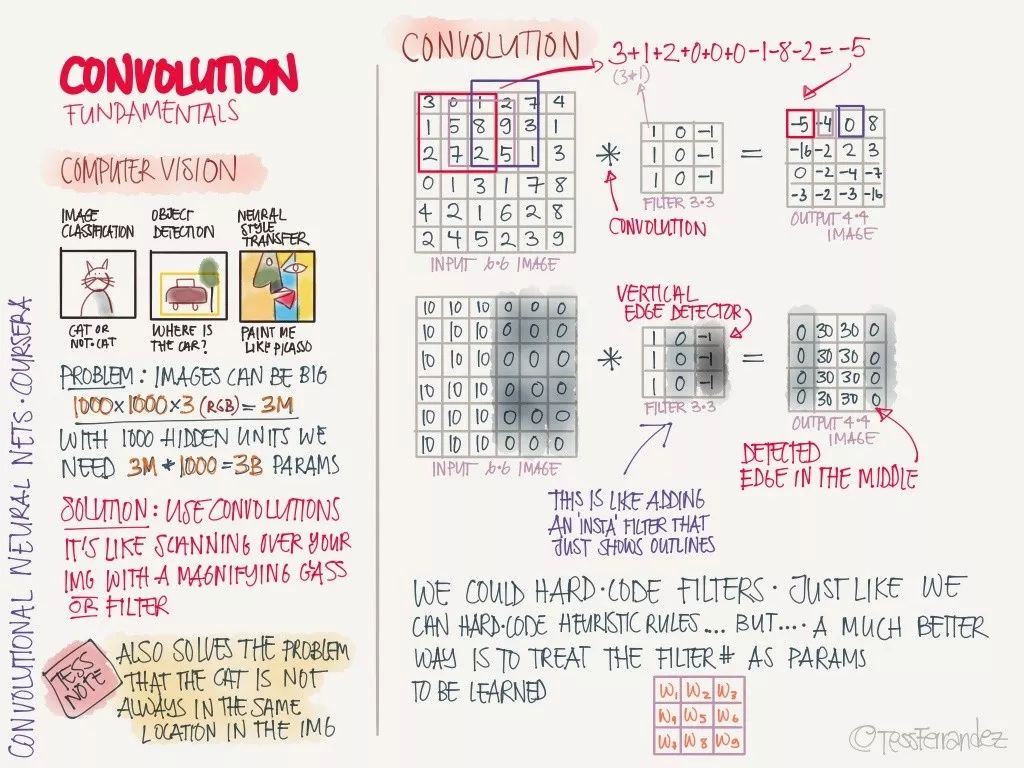 CONVOLUTIONAL NEURAL NETS · COURSERA
CONVOLUTION
FUNDAMENTALS
COMPUTER VISION
IMAGE
CLASSIFICATION
CAT OR
NOT·CAT
OBJECT
DETECTION
WHERE IS
THE CAR?
NEURAL
STYLE
TRANSFER
PAINT ME
LIKE PICASSO
PROBLEM: IMAGES CAN BE BIG
1000×1000×3 (RGB) = 3M
WITH 1000 HIDDEN UNITS WE
NEED 3M * 1000 = 3B PARAMS
SOLUTION: USE CONVOLUTIONS
IT'S LIKE SCANNING OVER YOUR
IMG WITH A MAGNIFYING GASS
OR FILTER
TESS
NOTE
ALSO SOLVES THE PROBLEM
THAT THE CAT IS NOT
ALWAYS IN THE SAME
LOCATION IN THE IMG
CONVOLUTION
3+1+2+0+0+0-1-8-2=-5
(3*1)
3 0 1 2 7 4
1 5 8 9 3 1
2 7 2 5 1 3
0 1 3 1 7 8
4 2 1 6 2 8
2 4 5 2 3 9
INPUT 6·6 IMAGE
*
CONVOLUTION
1 0 -1
1 0 -1
1 0 -1
FILTER 3·3
=
-5 -4 0 8
-16 -2 2 3
0 -2 -4 -7
-3 -2 -3 -16
OUTPUT 4·4
IMAGE
10 10 10 0 0 0
10 10 10 0 0 0
10 10 10 0 0 0
10 10 10 0 0 0
10 10 10 0 0 0
10 10 10 0 0 0
INPUT 6·6 IMAGE
*
VERTICAL
EDGE DETECTOR
1 0 -1
1 0 -1
1 0 -1
FILTER 3·3
=
0 30 30 0
0 30 30 0
0 30 30 0
0 30 30 0
OUTPUT 4·4
IMAGE
DETECTED
EDGE IN THE MIDDLE
THIS IS LIKE ADDING
AN 'INSTA' FILTER THAT
JUST SHOWS OUTLINES
WE COULD HARD·CODE FILTERS · JUST LIKE WE
CAN HARD·CODE HEURISTIC RULES.... BUT.... A MUCH BETTER
WAY IS TO TREAT THE FILTER# AS PARAMS
TO BE LEARNED
W1 W2 W3
W4 W5 W6
W7 W8 W9
©TESSFERRANDEZ